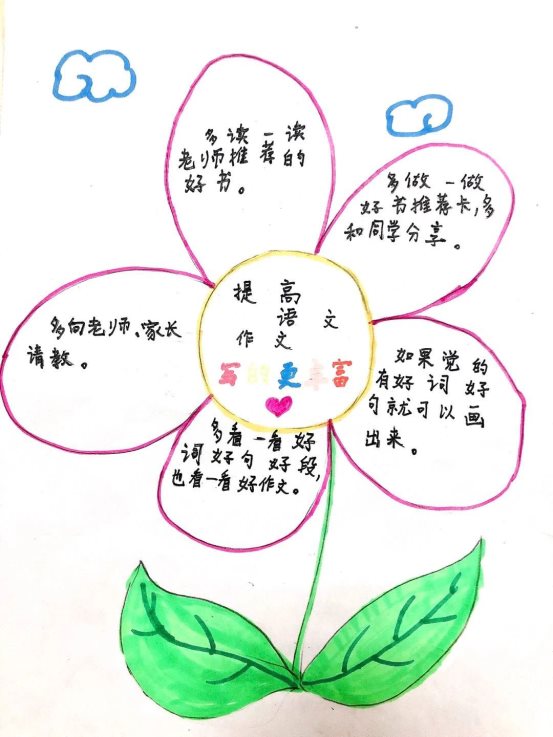 多读一读
老师推荐的
好书。
多做一做
好书推荐卡,多
和同学分享。
多向老师、家长
请教。
提高
语文
作文
写的更丰富
如果觉的
有好词好
句就可以画
出来。
多看一看好
词好句好段,
也看一看好作文。